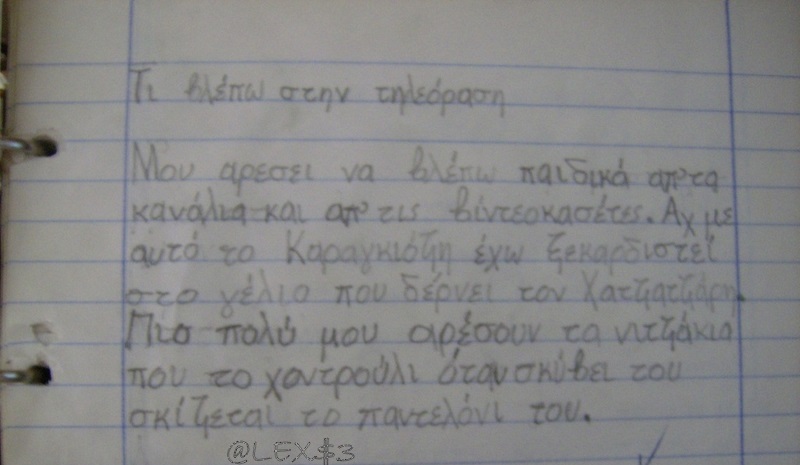 Τι βλέπω στην τηλεόραση
Μου αρεσει να βλέπω παιδικά απ'τα
κανάλια και απ' τις βιντεοκασέτες. Αχ με
αυτό το Καραγκιόζη έχω ξεκαρδιστεί
στο γέλιο που δέρνει τον Χατζατζάρη.
Πιο πολύ μου αρέσουν τα νιτζάκια
που το χοντρούλι όταν σκύβει του
σκίζεται το παντελόνι του.
@LEX$3